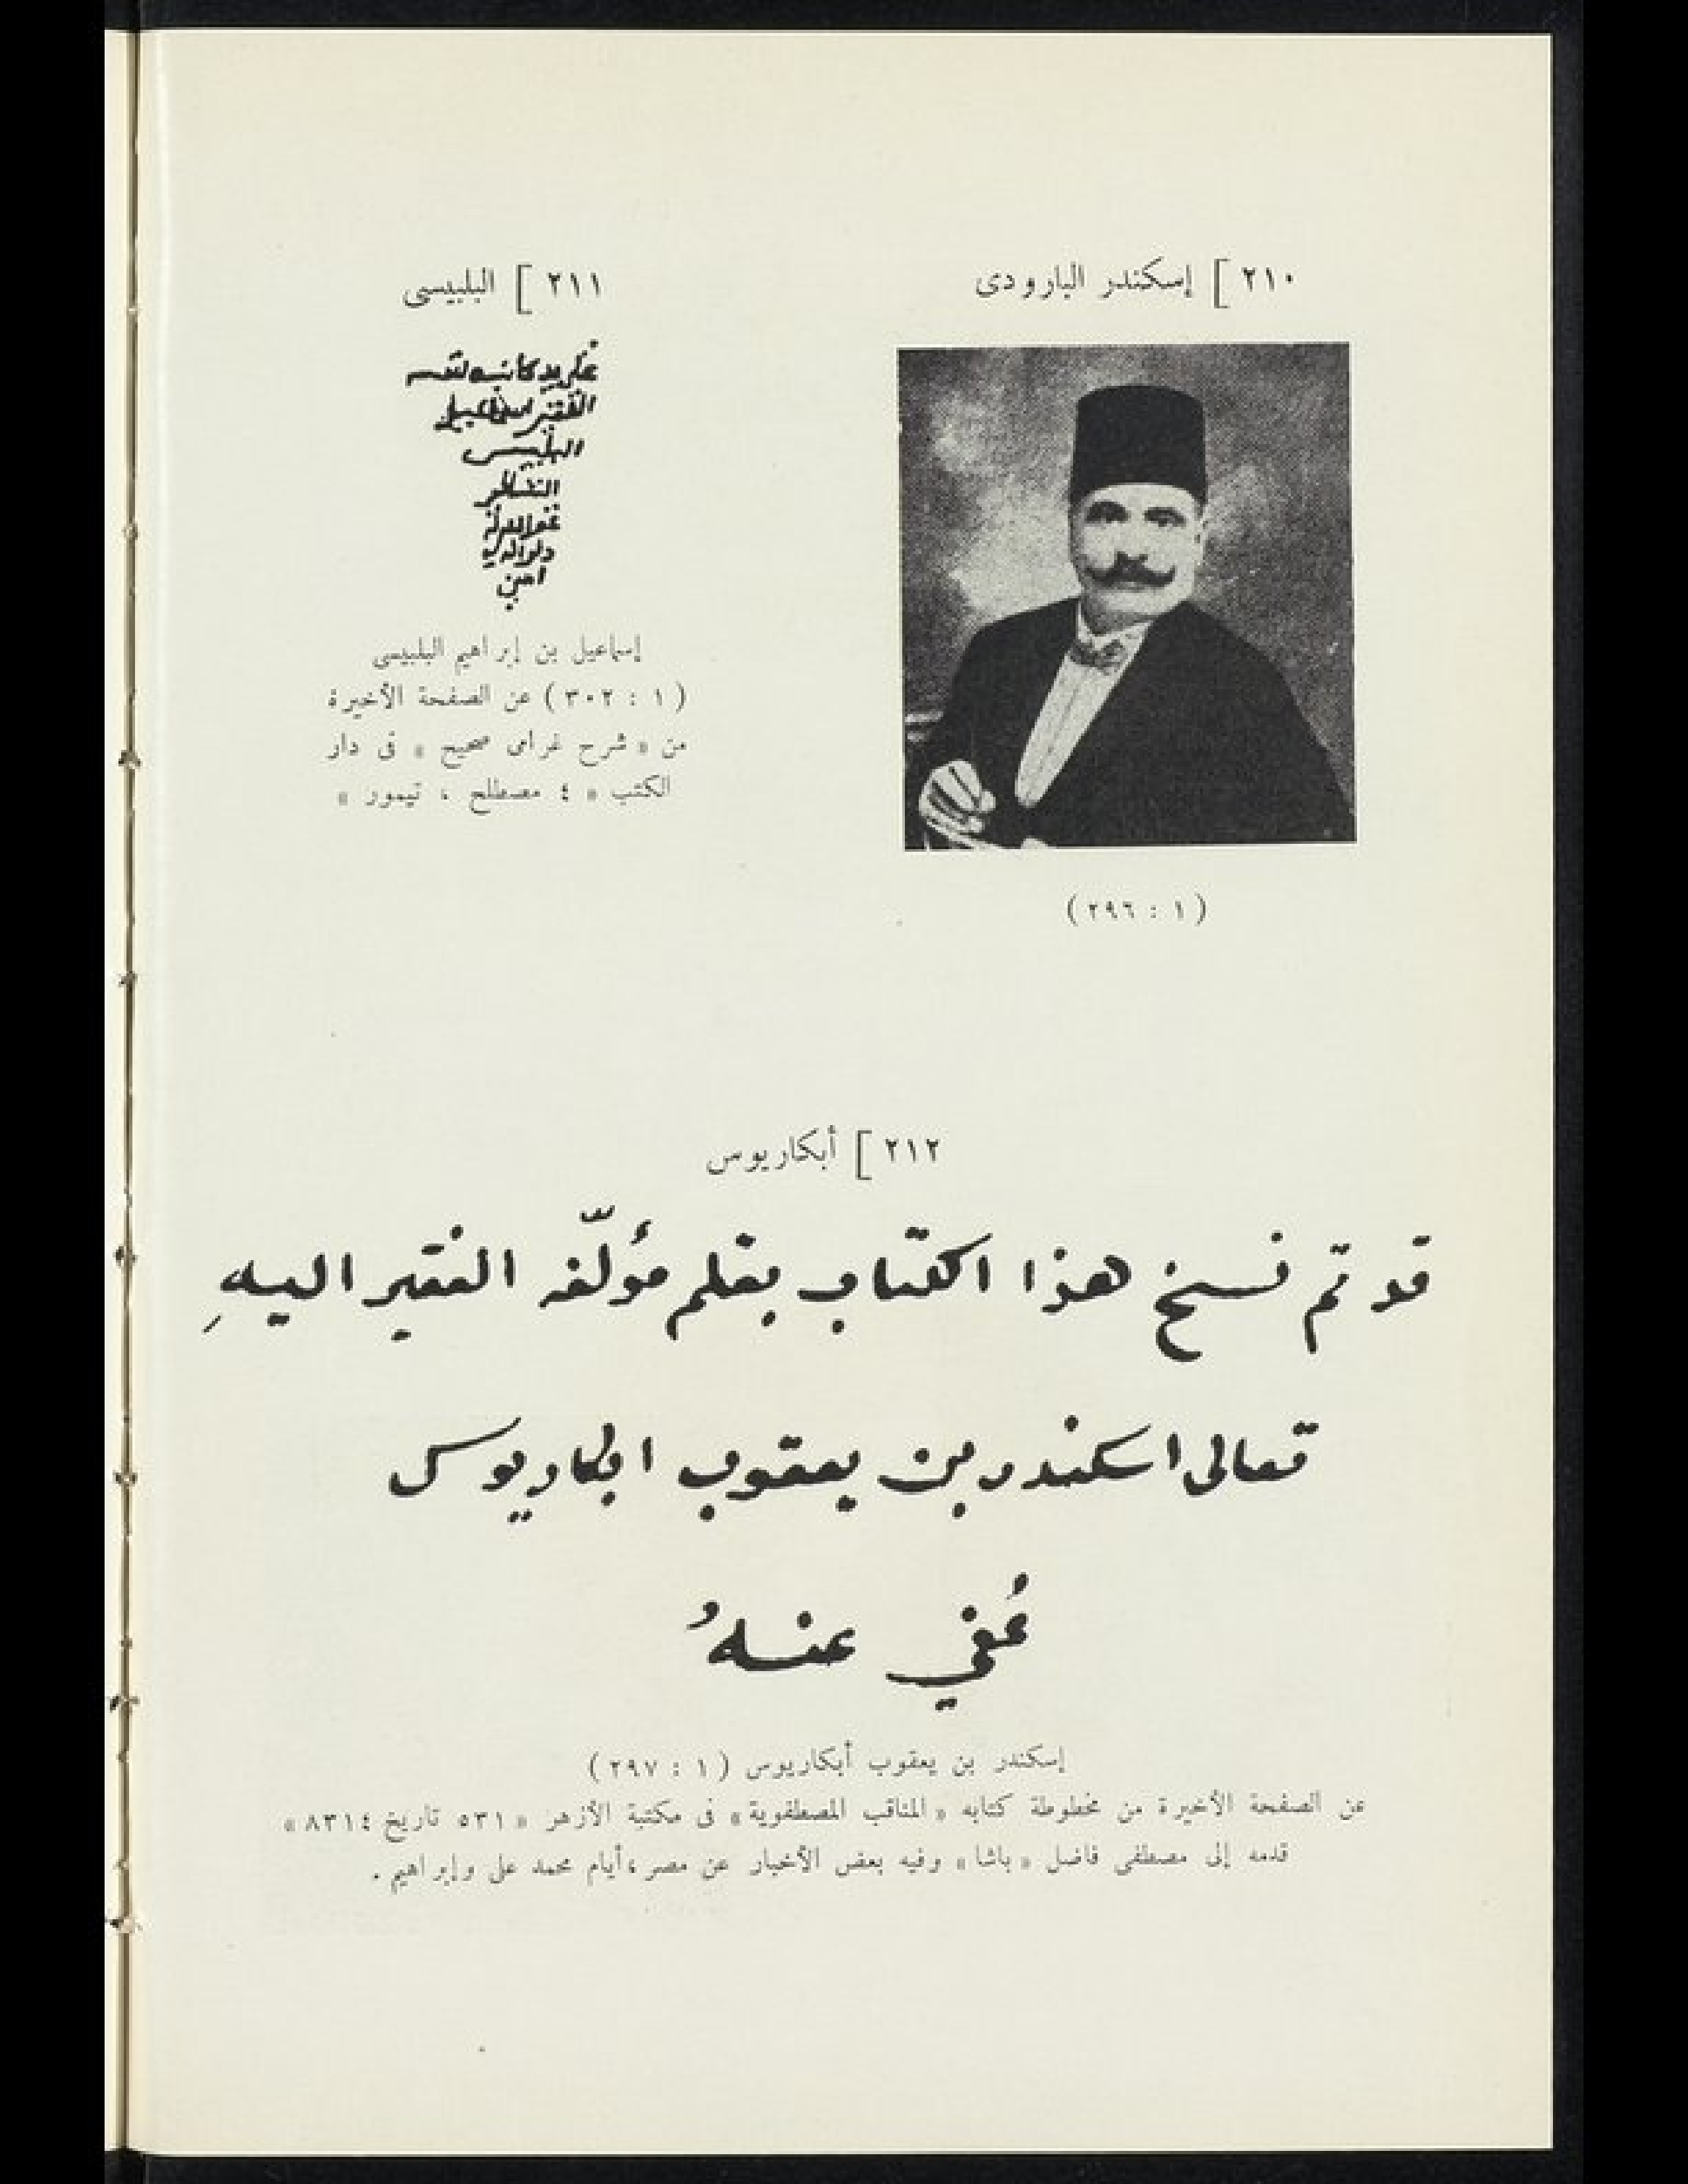 ٢١٠ ] إسكندر البارودى
( ١ : ٢٩٦ )
٢١١ ] البلبيسى
على يد كاتبه لنفسه
الفقير اسماعيل
البلبيسى
الشافعى
غفر الله له
ولوالديه
امين
إسماعيل بن إبراهيم البلبيسى
( ١ : ٣٠٢ ) عن الصفحة الأخيرة
من « شرح غرامى صحيح » فى دار
الكتب « ٤ مصطلح ، تيمور »
٢١٢ ] أبكاريوس
قد تم نسخ هذا الكتاب بقلم مؤلّفه الفقير اليهِ
تعالى اسكندر بن يعقوب ابكاريوس
عُفي عنهُ
إسكندر بن يعقوب أبكاريوس ( ١ : ٢٩٧ )
عن الصفحة الأخيرة من مخطوطة كتابه « المناقب المصطفوية » فى مكتبة الأزهر « ٥٣١ تاريخ ٨٣١٤ »
قدمه إلى مصطفى فاضل « باشا » وفيه بعض الأخبار عن مصر ، أيام محمد على وإبراهيم .